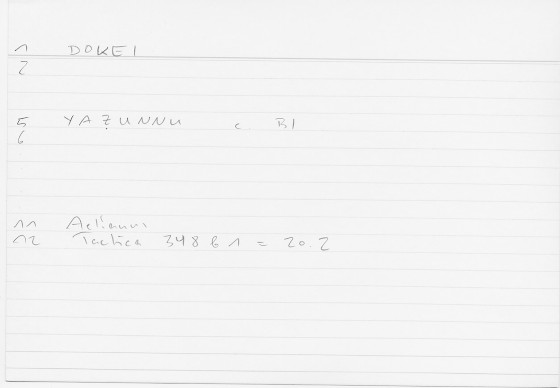 1 DOKEI
2
5 YAẒUNNU c BI
6
11 Aelianus
12 Tactica 348 b 1 = 20.2